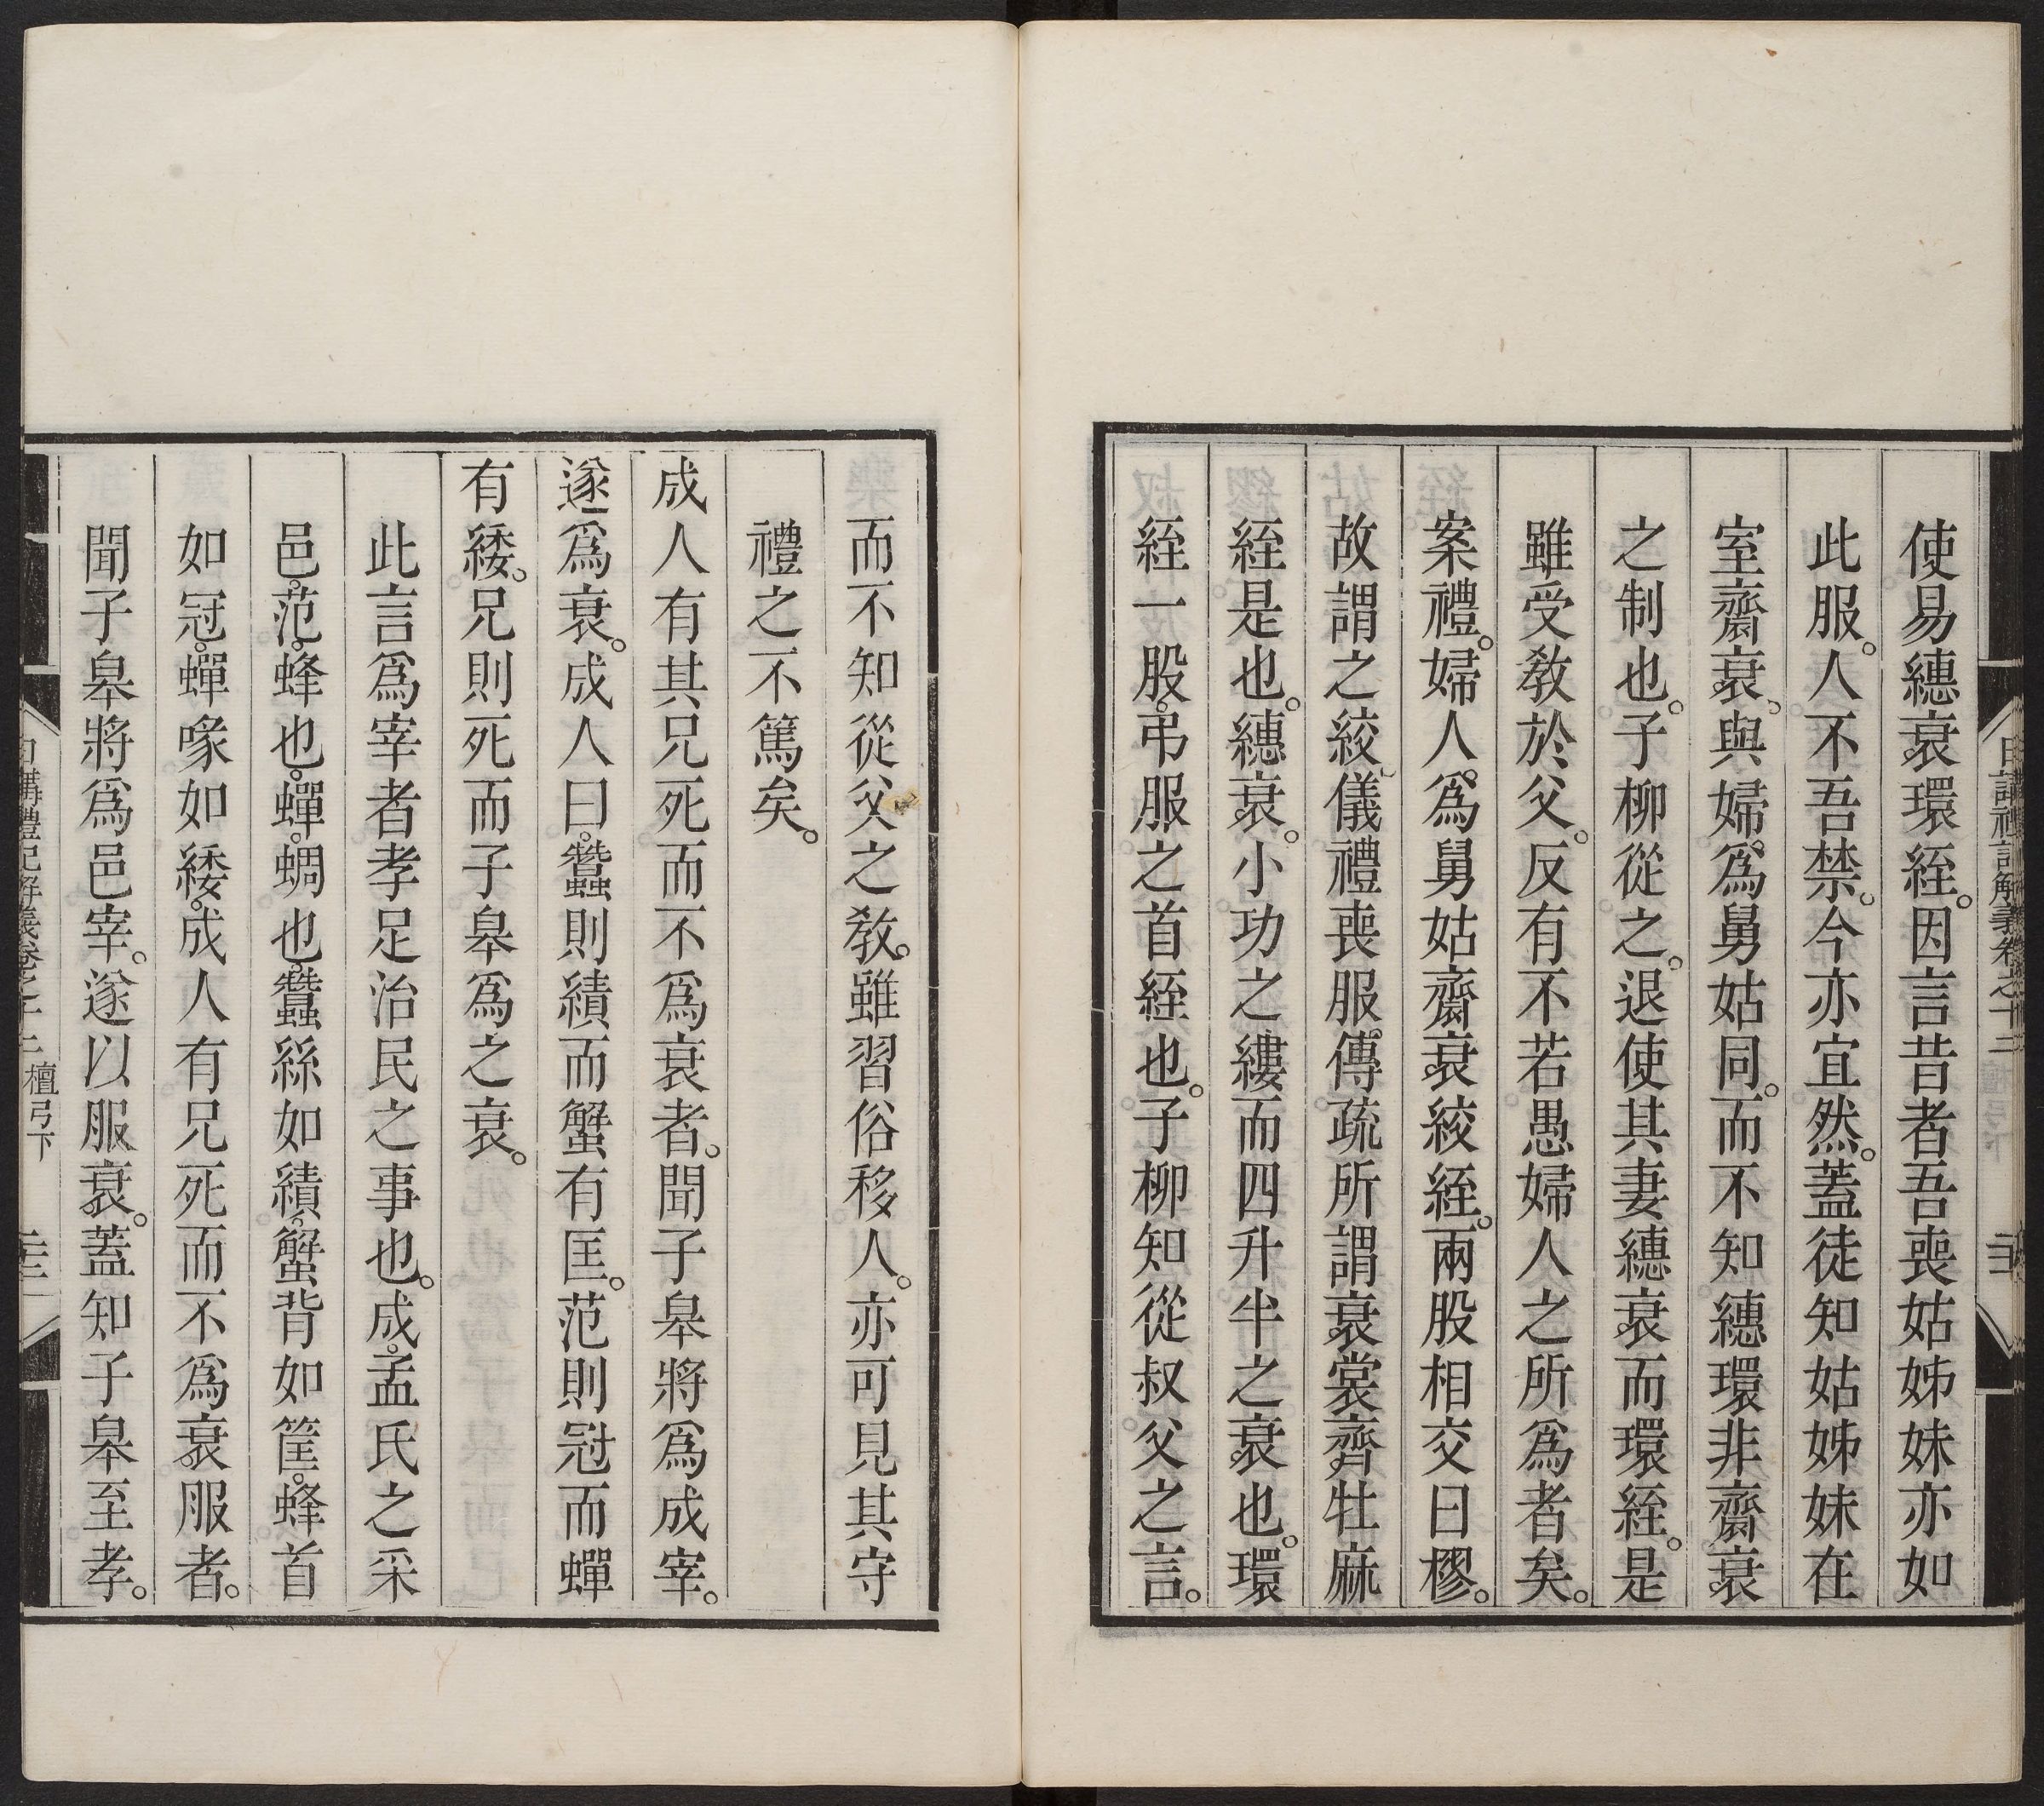 使易繐衰環絰。因言昔者吾喪姑姊妹亦如
此服。人不吾禁。今亦宜然。蓋徒知姑姊妹在
室齋衰、與婦爲舅姑同。而不知繐環非齋衰
之制也。子柳從之。退使其妻繐衰而環絰。是
雖受教於父。反有不若愚婦人之所爲者矣。
案禮。婦人爲舅姑齋衰絞絰。兩股相交曰樛。
故謂之絞。儀禮喪服傳疏所謂衰裳齊牡麻
絰是也。繐衰。小功之縷而四升半之衰也。環
絰一股。弔服之首絰也。子柳知從叔父之言。
日講禮記解義卷之十二 檀弓下
而不知從父之教。雖習俗移人。亦可見其守
禮之不篤矣。
成人有其兄死而不爲衰者。聞子皋將爲成宰。
遂爲衰。成人曰。蠶則績而蟹有匡。范則冠而蟬
有緌。兄則死而子皋爲之衰。
此言爲宰者孝足治民之事也。成。孟氏之采
邑。范。蜂也。蟬。蜩也。蠶絲如績。蟹背如筐。蜂首
如冠。蟬喙如緌。成人有兄死而不爲衰。服者。
聞子皋將爲邑宰。遂以服衰。蓋知子皋至孝。
日講禮記解義卷之十二 檀弓下